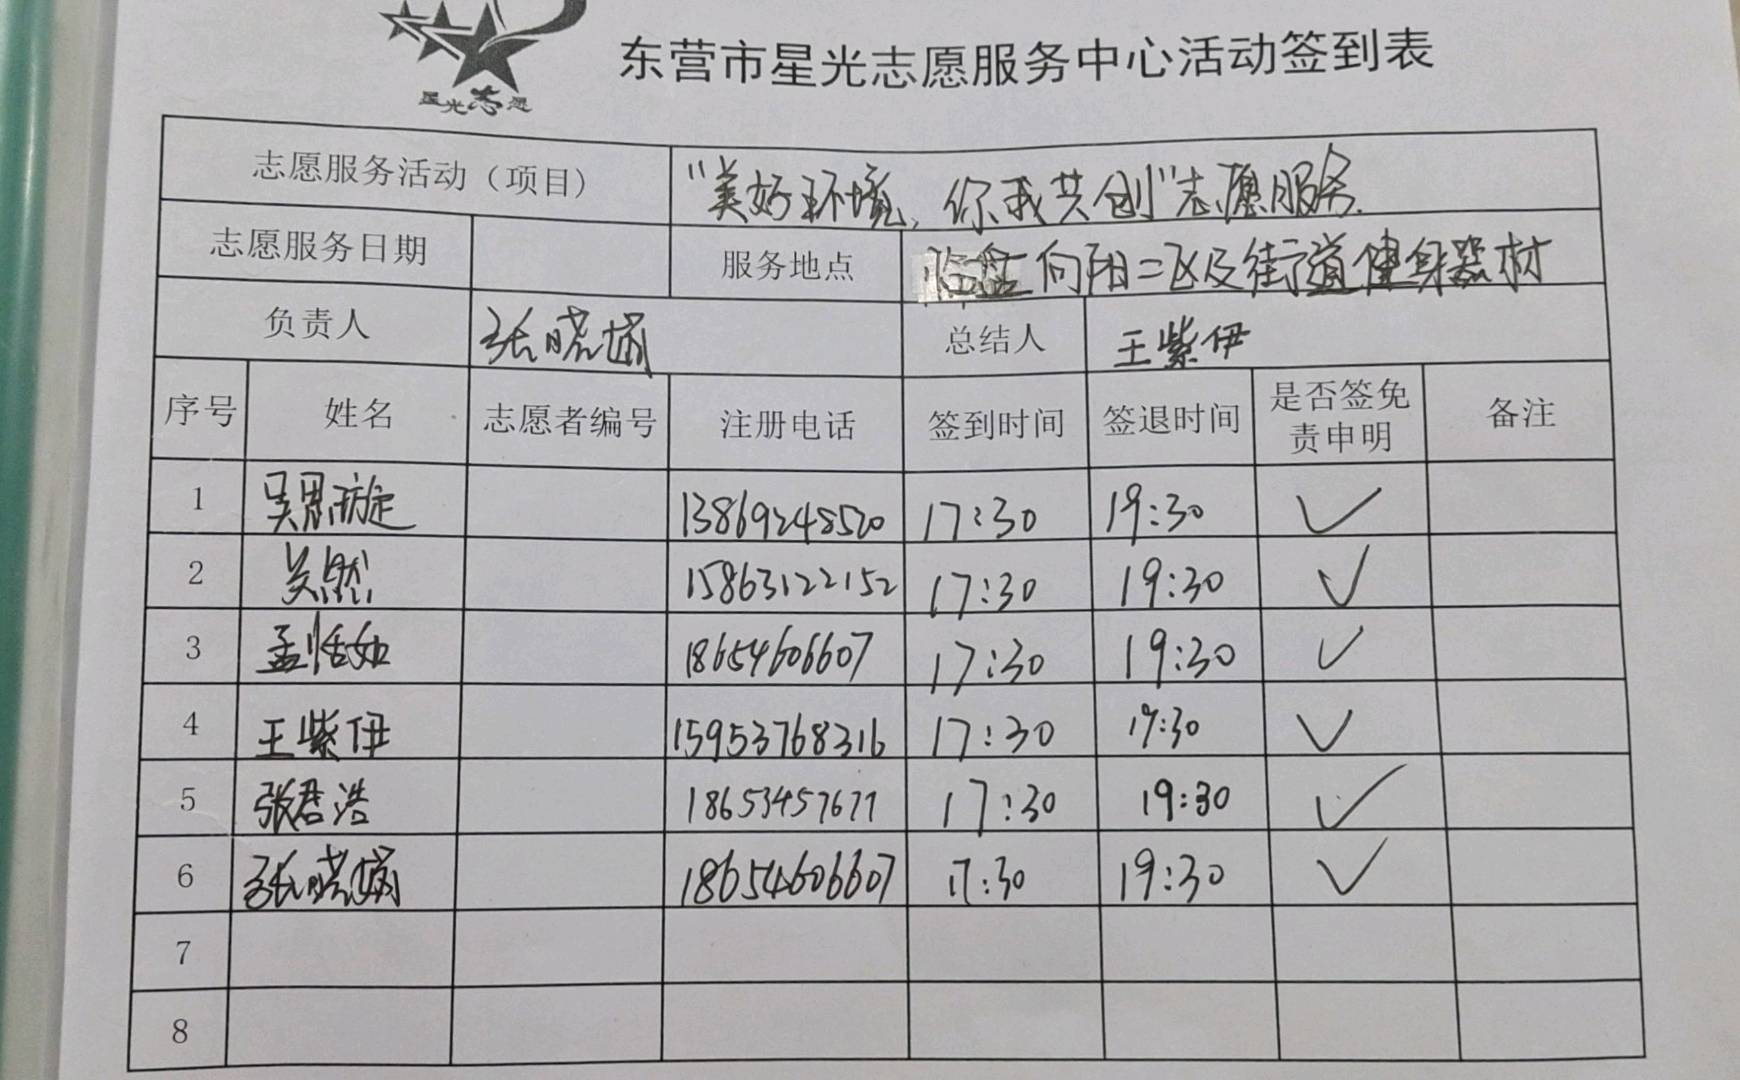 星光志愿
东营市星光志愿服务中心活动签到表
志愿服务活动（项目） "美好环境，你我共创"志愿服务.
志愿服务日期 服务地点 临盘向阳二区及街道健身器材
负责人 张晓娟 总结人 王紫伊
序号 姓名 志愿者编号 注册电话 签到时间 签退时间 是否签免责申明 备注
1 吴思璇 13869248520 17:30 19:30 ✓
2 吴然 15863122152 17:30 19:30 ✓
3 孟恬如 18654606607 17:30 19:30 ✓
4 王紫伊 15953768316 17:30 19:30 ✓
5 张君浩 18653457677 17:30 19:30 ✓
6 张晓娟 18654606607 17:30 19:30 ✓
7
8